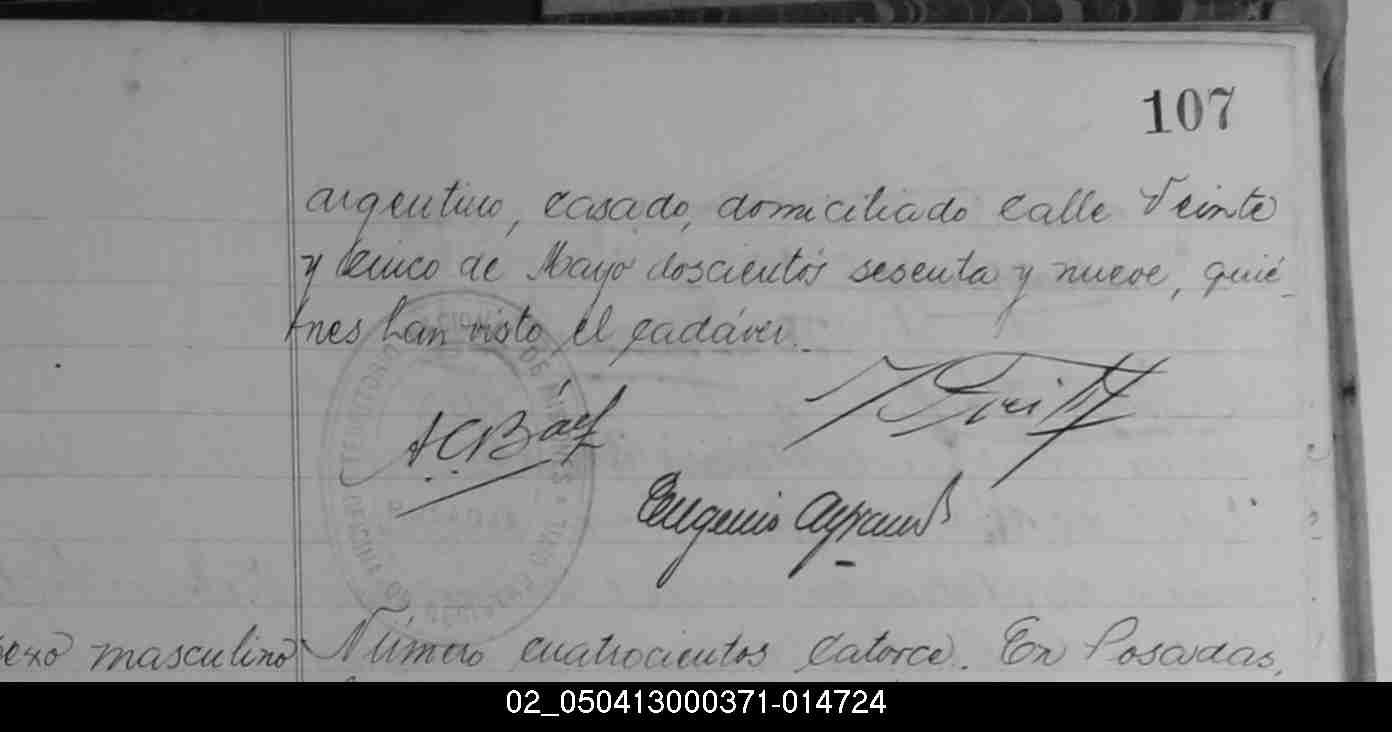 107
argentino, casado, domiciliado calle Veinte
y cinco de Mayo doscientos sesenta y nueve, quié-
nes han visto el cadáver.
A C Báez
Eugenio
exo masculino Número cuatrocientos catorce. En Posadas,
02_050413000371-014724